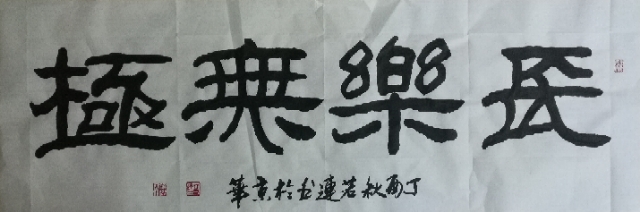 長樂無極
丁酉秋若連书於京華